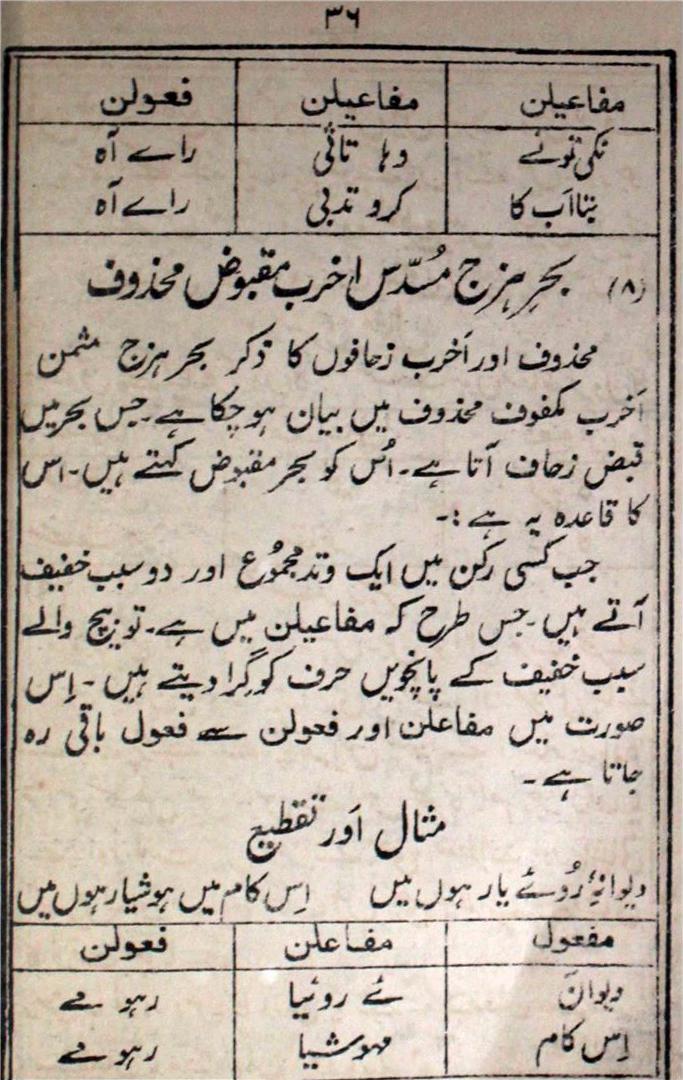 ۳۶
مفاعیلن مفاعیلن فعولن
نکی تونے وہا تائی راے آہ
بتااَب کا کرو تدبی راے آہ
(۸) بحرِ ہزج مُسدّس اخرب مقبوض محذوف
محذوف اور اَخرب زحافوں کا ذکر بحر ہزج مثمن
اَخرب مکفوف محذوف میں بیان ہو چکا ہے۔ جس بحر میں
قبض زحاف آتا ہے۔ اُس کو بحر مقبوض کہتے ہیں۔ اس
کا قاعدہ یہ ہے:۔
جب کسی رکن میں ایک وتد مجموُع اور دو سبب خفیف
آتے ہیں۔ جس طرح کہ مفاعیلن میں ہے۔ تو بیچ والے
سبب خفیف کے پانچویں حرف کو گرا دیتے ہیں۔ اِس
صورت میں مفاعلن اور فعولن سے فعول باقی رہ
جاتا ہے۔
مثال اَور تقطیع
دیوانۂ رُوئے یار ہوں میں اِس کام میں ہوشیار ہوں میں
مفعول مفاعلن فعولن
دیوانَ ئے روئیا رہو مے
اِس کام مہوشیا رہو مے